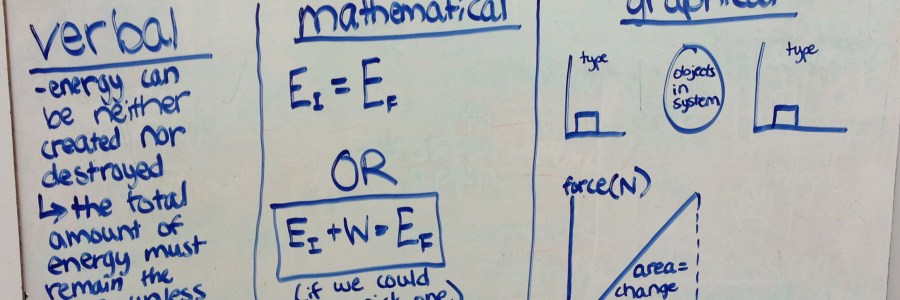 verbal
-energy can
be neither
created nor
destroyed
↳the total
amount of
energy must
remain the
unless
mathematical
E_I = E_F
OR
E_I + W = E_F
(if we could
pick one)
graphical
type
objects
in
system
type
force(N)
area=
change